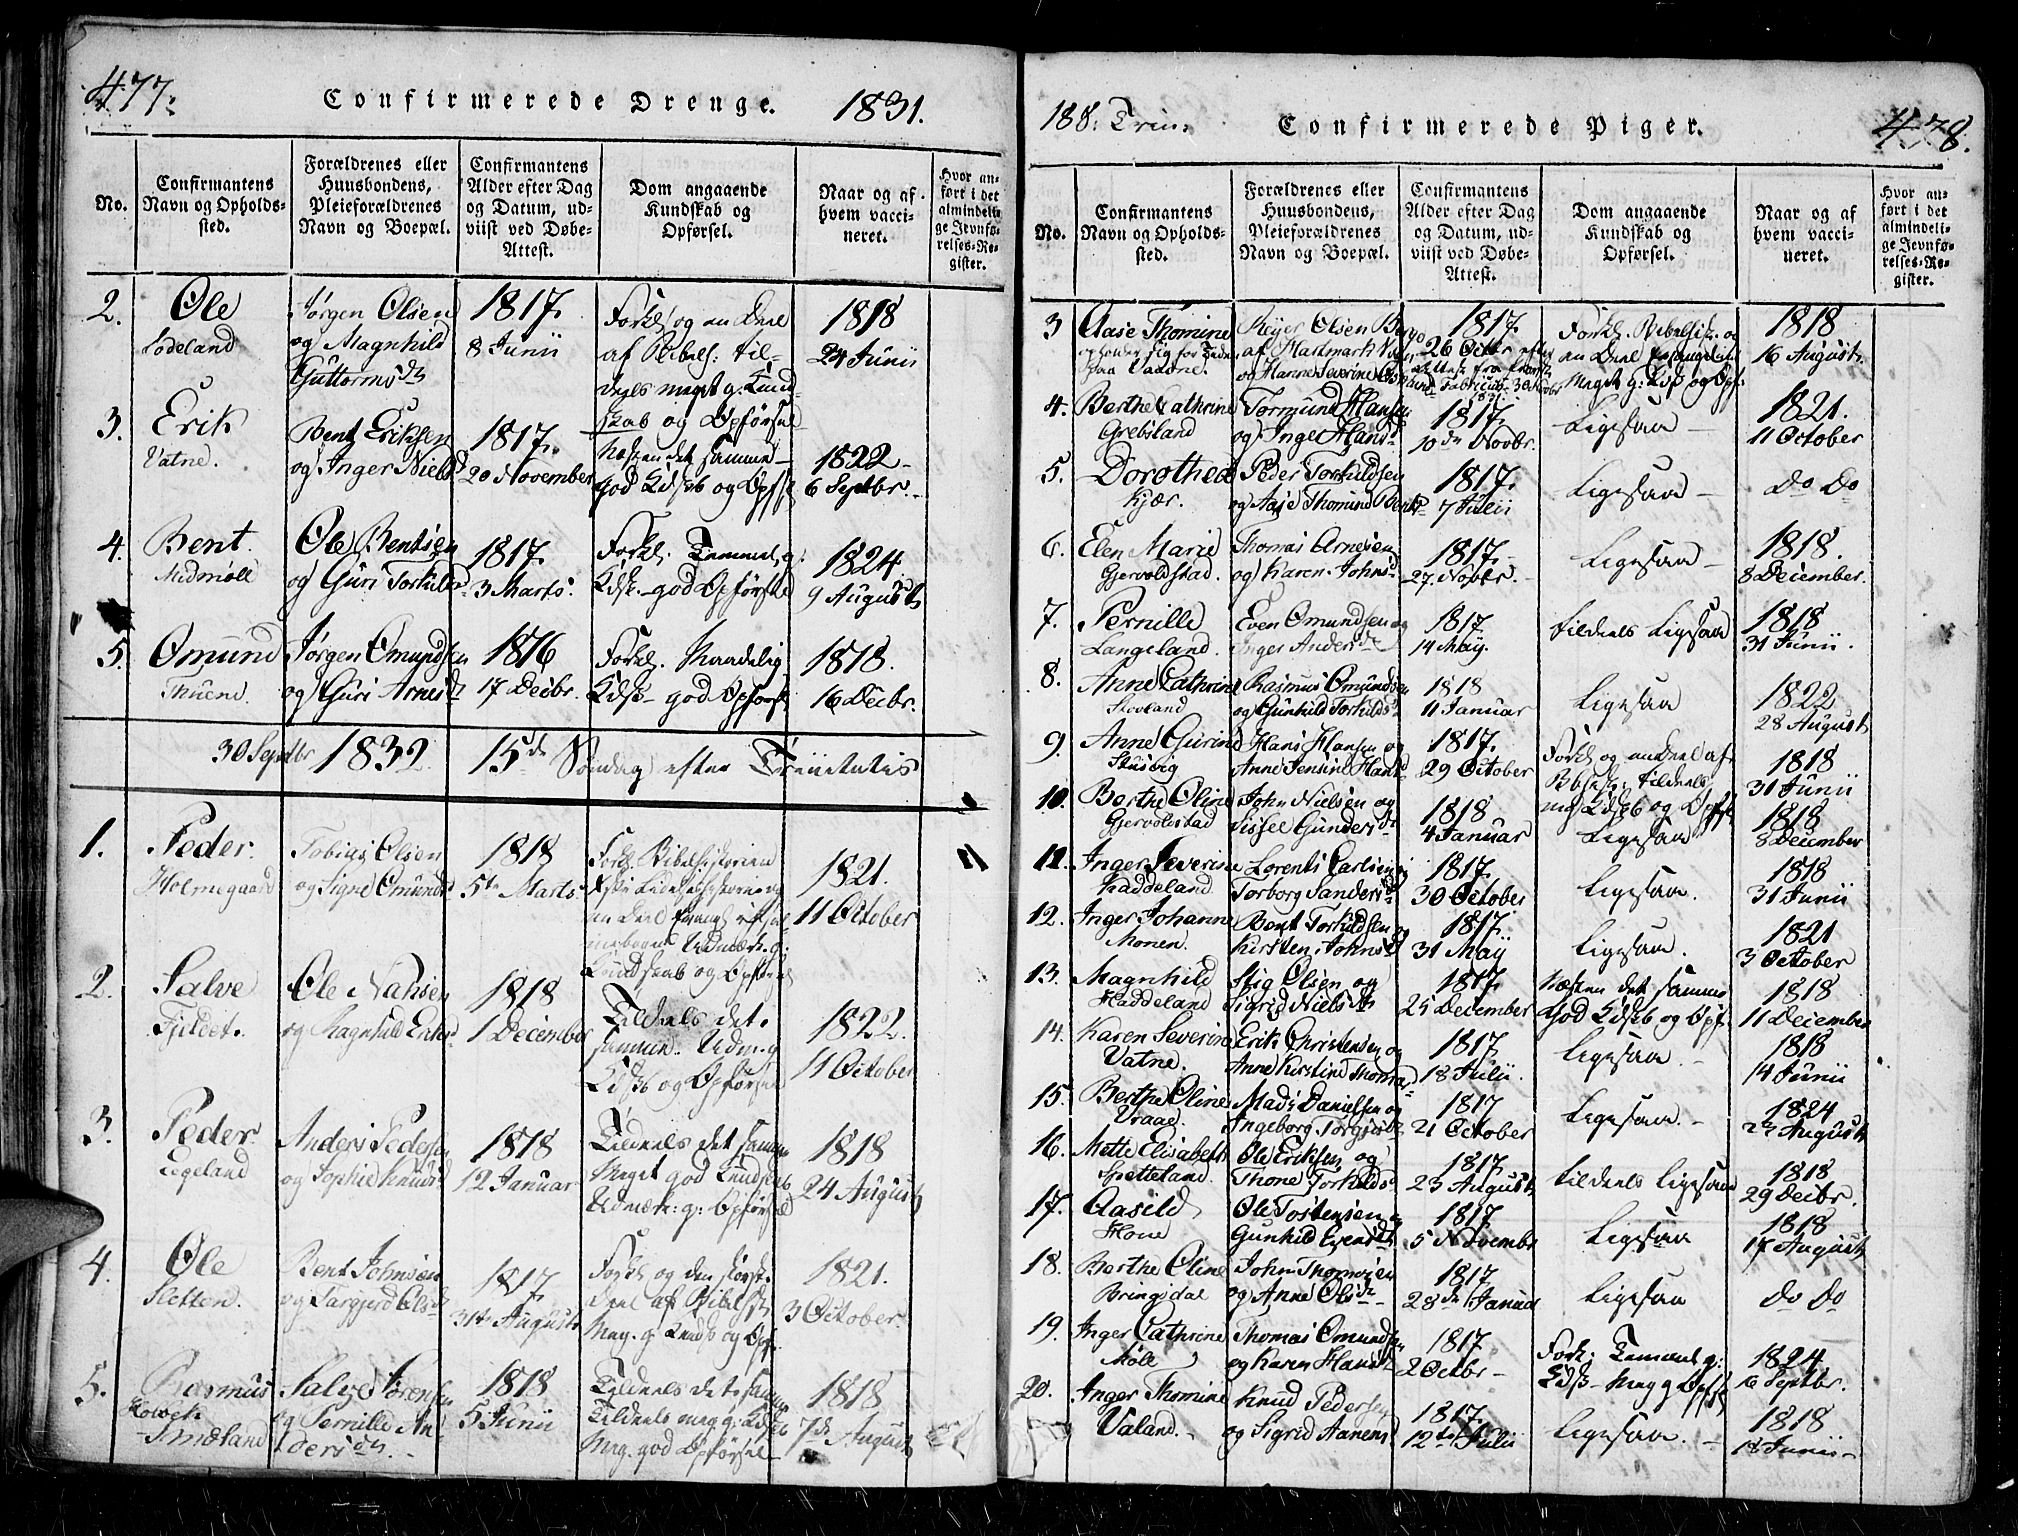 477.
Confirmerede Drenge.
1831.
No.
Confirmantens Navn og Opholds-sted.
Forældrenes eller Huusbondens, Pleieforældrenes Navn og Boepæl.
Confirmantens Alder efter Dag og Datum, ud-viist ved Døbe-Attest.
Dom angaaende Kundskab og Opførsel.
Naar og af hvem vacci-neret.
Hvor an-ført i det almindeli-ge Jevnfø-relses-Re-gister.
2. Ole
Jørgen Olsen
og Magnhild
Guttormsdr
1817.
8 Junii
Forkl. og en Deel
af Bibelh: til-
deels meget g: Kund-
skab og Opførsel
1818
24 Junii
3. Erik
Vatne.
Bent Eriksen
og Inger Nielsd
1817.
20 November
Næsten det samme
god Kdskb og Opfsl
1822
6 Septbr.
4. Bent.
Midmøll
Ole Bentsen
og Guri Torkilds
1817.
3 Marts.
Forkl. Temmel. g.
Kdsk. god Opførsel
1824
9 August
5. Omund
Thuene.
Jørgen Omundsen
og Guri Arnesd
1816
17 Decbr.
Forkl. Maadelig
Kdsk god Opførsl
1818.
16 Decbr.
30 Septbr 1832 15de Søndag efter Trinitatis
1. Peder.
Holmegaard
Tobias Olsen
og Signe Omundsd
1818
5te Marts.
Forkl. Bibelhistorien
Kundskab og Opførsel
1821.
11 October
2. Salve
Fjeldet.
Ole
og Magnhild
1818
1 December
Tildeels det
samme. Udm. g
Kdskb og Opførsel
1822.
11 October
3. Peder.
Egeland
Anders Pedersen
og Sophie Knuds
1818
12 Januar
Tildeels det samme
Meget god Kundskb
Udmærk: g: Opførsel
1818
24 August
4. Ole
Sletten.
Bent Johnsen
og Targjerd Olsd
1817
31te August
Forkl og den størst
deel af Bibelh
Meg. g. Kundsk og Opf.
1821.
3 October.
5. Rasmus
Salve Sørensen
og Pernille An-
dersdr
1818
5 Junii
Tildeels det samme
Tildeels meg g: Kdskb
Meg. god Opførsel
1818
7de August
188: Trin:
Confirmerede Piger.
478.
No.
Confirmantens Navn og Opholds-sted.
Forældrenes eller Huusbondens, Pleieforældrenes Navn og Boepæl.
Confirmantens Alder efter Dag og Datum, ud-viist ved Døbe-Attest.
Dom angaaende Kundskab og Opførsel.
Naar og af hvem vacci-neret.
Hvor an-ført i det almindeli-ge Jevnfø-relses-Re-gister.
3 Aase Thomine
1817.
26 Octbr
1818
16 August
4. Berthe Cathrine
Grebsland
Tormund Hansen
og Inger Hansd
1817.
10de Novbr.
Ligesaa
1821.
11 October
5. Dorothea
Kjær.
Peder Torkildsen
og Aase Thomine Bents
1817.
7 Julii
Ligesaa
Do Do
6. Elen Marie
Gjervoldstad.
Thomas Arnesen
og Karen Johnsd
1817.
27. Novbr.
Ligesaa
1818.
8 December.
7. Pernille
Langeland.
Even Omundsen og
Inger Andersdr
1817
14 May.
tildeels Ligesaa
1818
31 Junii.
8. Anne Cathrine
Rasmus Omundsen
og Gunhild Torkilds
1818
11 Januar
Ligesaa
1822
28 August
9. Anne Gurine
Stusvig
Hans Hansen og
Anne Jensine Hansd
1817.
29 October
Forkl og en Deel af
1818
31 Junii
10. Berthe Oline
Gjervoldstad
John Nielsen og
Sissel Gundersdr
1818
4 Januar
Ligesaa
1818
8 December
11. Inger Severine
Haddeland
Lorents Carlsen og
Torborg Sandersdr
1817.
30 October
Ligesaa.
1818
31 Junii
12. Inger Johanne
Monen.
Bent Torkildsen og
Kirsten Johnsd
1817.
31 May
Ligesaa.
1821
3 October
13. Magnhild
Haddeland
Stig Olsen og
Sigrid Nielsdr
1817.
25 December
Næsten det samme
God Kdskb og Opf.
1818
11 December
14. Karen Severine
Vatne.
Erik Christensen og
Anne Kirstine Thomas
1817
18 Julii.
Ligesaa
1818
14 Junii
15. Berthe Oline
Vraae.
Mads Danielsen og
Ingeborg Torgjersdr
1817
21 October
Ligesaa.
1824
August
16. Mette Elisabeth
Ole Eriksen og
Thone Torkilds
1817.
23 August
tildeels Ligesaa
1818
29 Decbr.
17. Aasild
Hone
Ole Tostensen og
Gunhild Evensdr
1817.
5 Novembr
Ligesaa
1818
17 August
18. Berthe Oline
Bringsdal
John Thomesen
og Anne Olsdr
1817.
28de Januar
Ligesaa
Do Do
19. Inger Cathrine
Møle
Thomas Omundsen
og Karen Hansdr
1817
2 Octbr
Forkl. Temmel g:
Kdsk Meg g Opfsl
1824
6 Septbr.
20. Inger Thomine
Valand.
Knud Pedersen
og Sigrid Aanens
1817.
12te Julii
Ligesaa.
1818
18 Junii